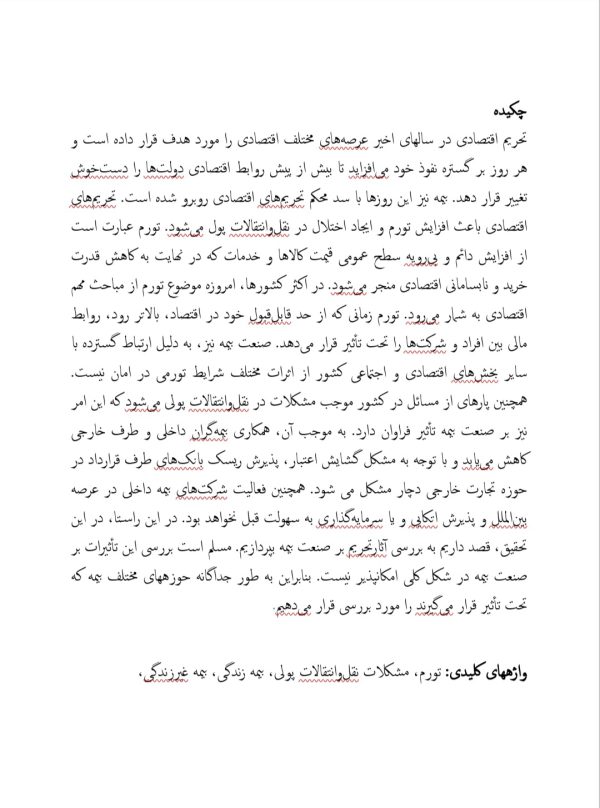 چکیده
تحریم اقتصادی در سالهای اخیر عرصه‌های مختلف اقتصادی را مورد هدف قرار داده است و
هر روز بر گستره نفوذ خود می‌افزاید تا بیش از پیش روابط اقتصادی دولت‌ها را دست‌خوش
تغییر قرار دهد. بیمه نیز این روزها با سد محکم تحریم‌های اقتصادی روبرو شده است. تحریم‌های
اقتصادی باعث افزایش تورم و ایجاد اختلال در نقل‌وانتقالات پول می‌شود. تورم عبارت است
از افزایش دائم و بی‌رویه سطح عمومی قیمت کالاها و خدمات که در نهایت به کاهش قدرت
خرید و نابسامانی اقتصادی منجر می‌شود. در اکثر کشورها، امروزه موضوع تورم از مباحث مهم
اقتصادی به شمار می‌رود. تورم زمانی که از حد قابل‌قبول خود در اقتصاد، بالاتر رود، روابط
مالی بین افراد و شرکت‌ها را تحت تأثیر قرار می‌دهد. صنعت بیمه نیز، به دلیل ارتباط گسترده با
سایر بخش‌های اقتصادی و اجتماعی کشور از اثرات مختلف شرایط تورمی در امان نیست.
همچنین پارهای از مسائل در کشور موجب مشکلات در نقل‌وانتقالات پولی می‌شود که این امر
نیز بر صنعت بیمه تأثیر فراوان دارد. به موجب آن، همکاری بیمه‌گران داخلی و طرف خارجی
کاهش می‌یابد و با توجه به مشکل گشایش اعتبار، پذیرش ریسک بانک‌های طرف قرارداد در
حوزه تجارت خارجی دچار مشکل می شود. همچنین فعالیت شرکت‌های بیمه داخلی در عرصه
بین‌الملل و پذیرش اتکایی و یا سرمایه‌گذاری به سهولت قبل نخواهد بود. در این راستا، در این
تحقیق، قصد داریم به بررسی آثارتحریم بر صنعت بیمه بپردازیم. مسلم است بررسی این تأثیرات بر
صنعت بیمه در شکل کلی امکانپذیر نیست. بنابراین به طور جداگانه حوزههای مختلف بیمه که
تحت تأثیر قرار می‌گیرند را مورد بررسی قرار می‌دهیم.
واژههای کلیدی: تورم، مشکلات نقل‌وانتقالات پولی، بیمه زندگی، بیمه غیرزندگی،